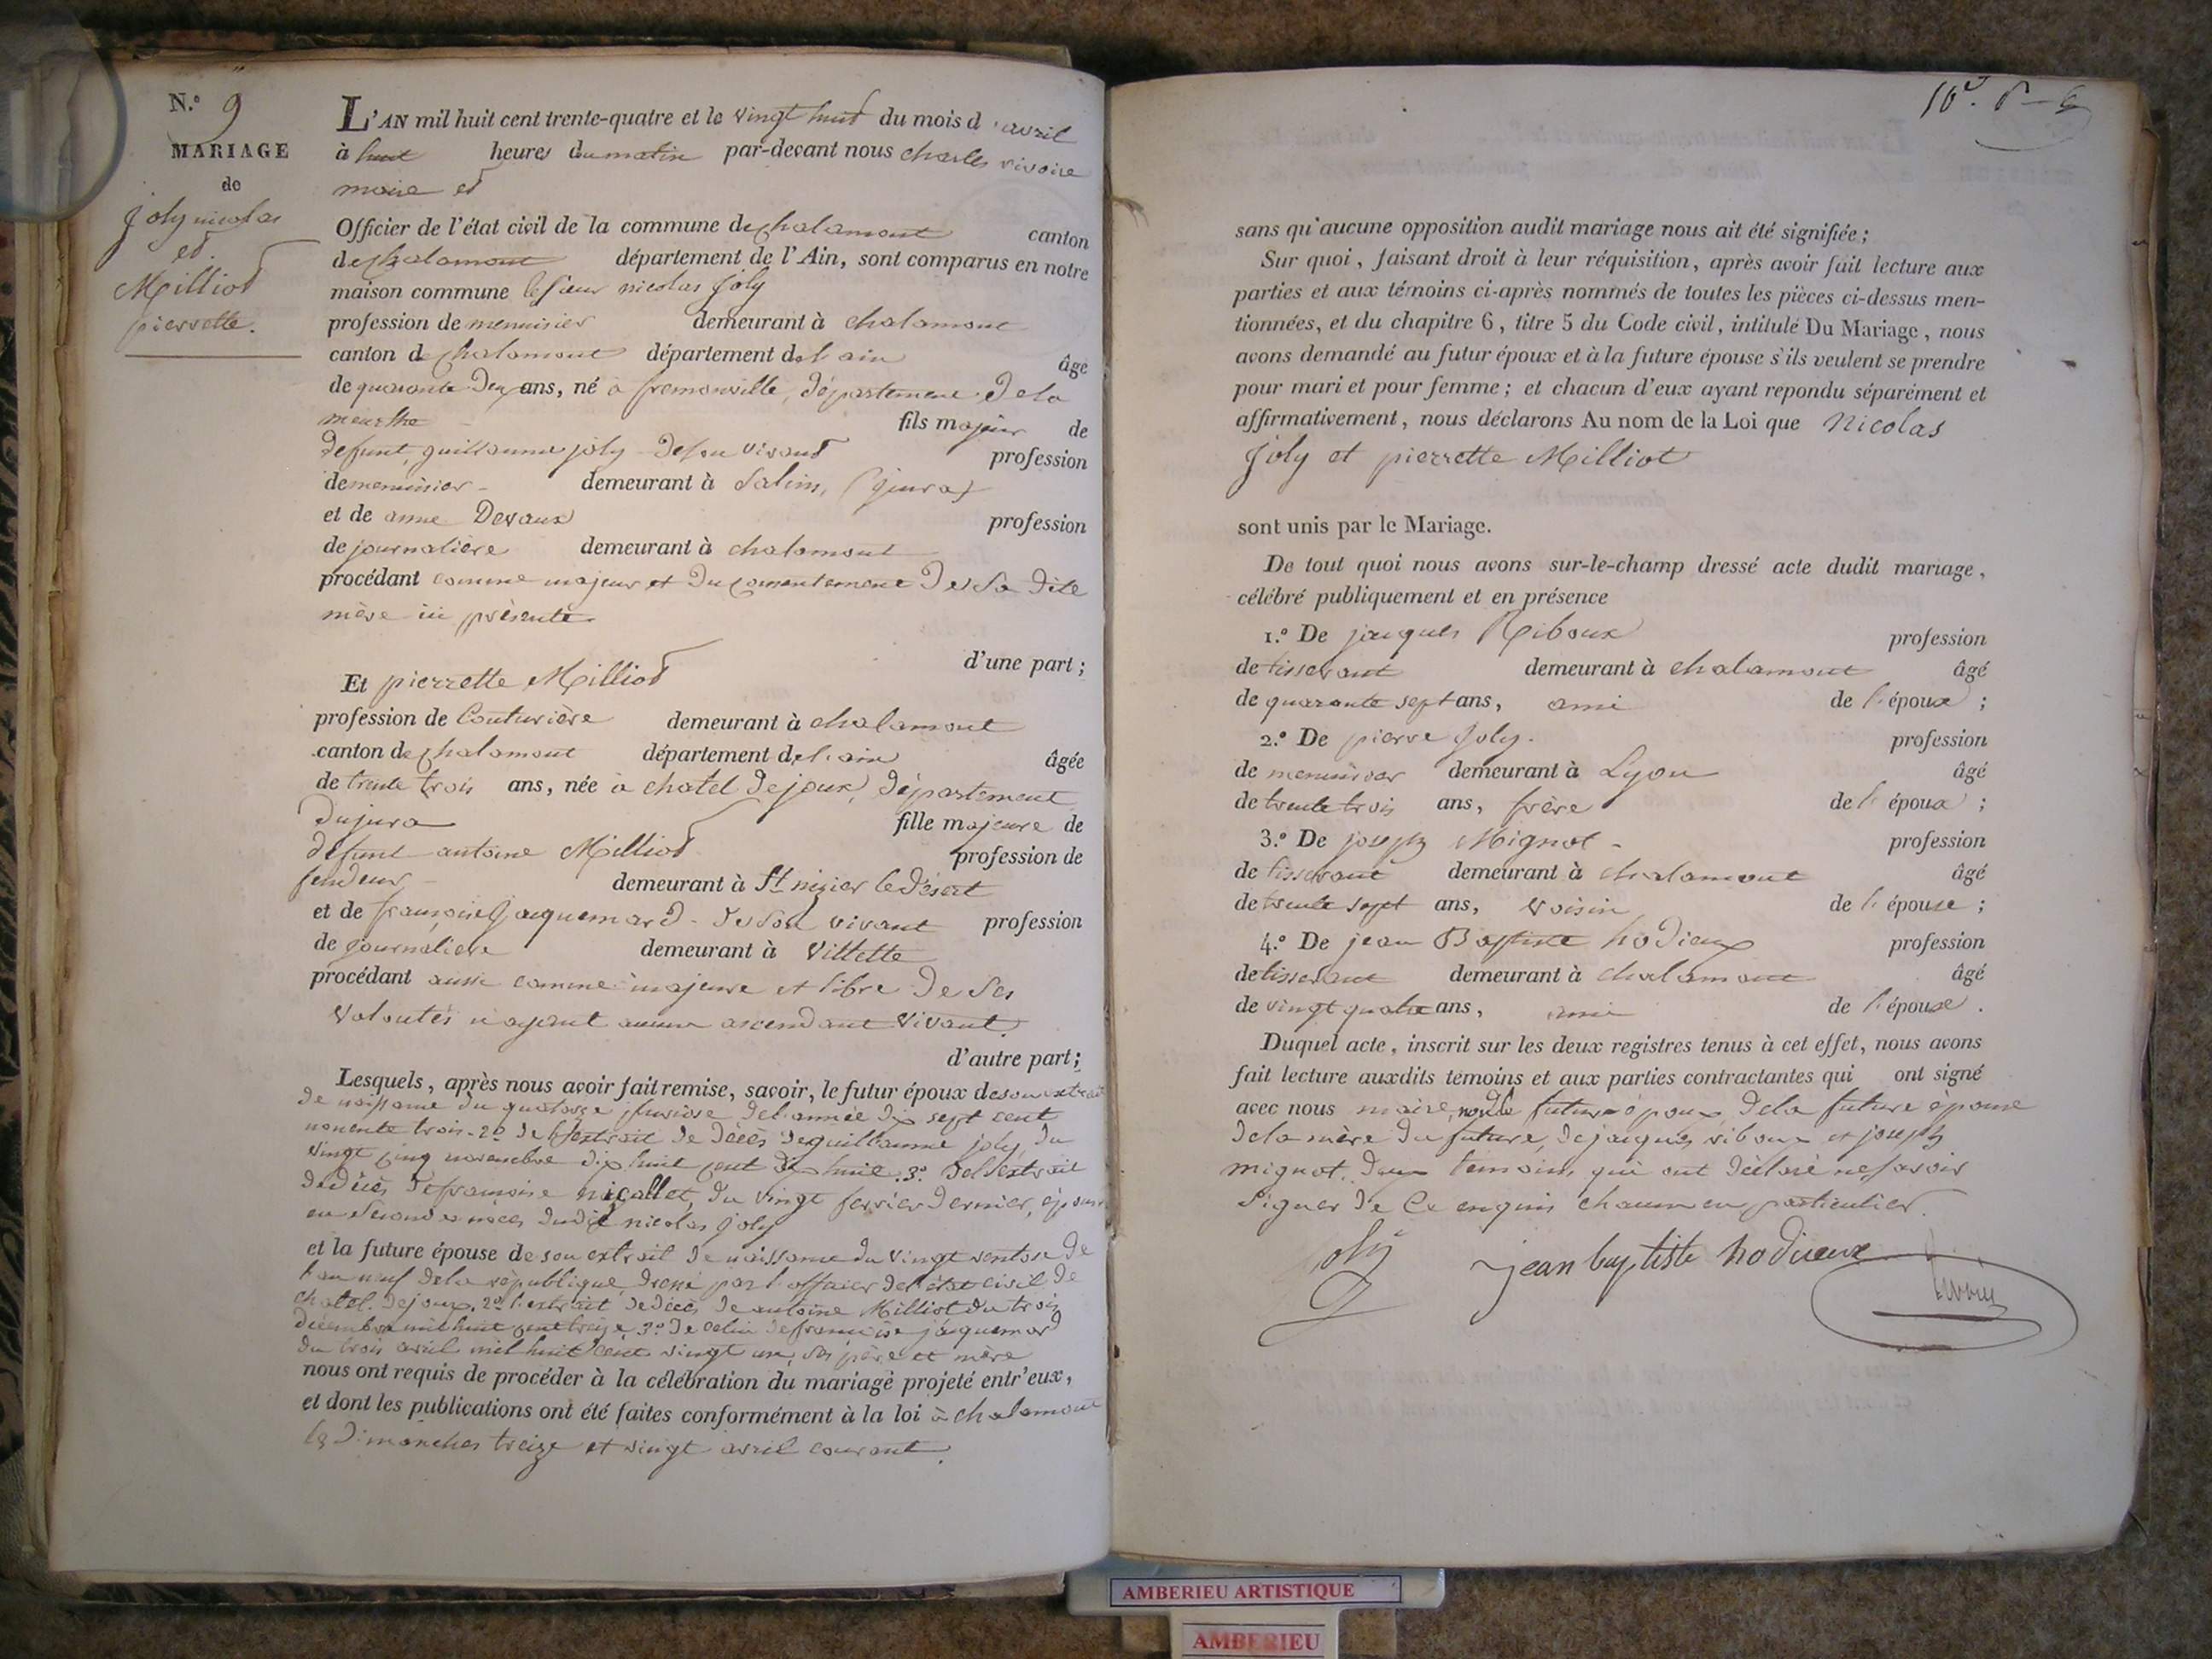 N.o 9
MARIAGE
de
joly nicolas
et
Milliot
pierrette.
L'AN mil huit cent trente-quatre et le vingt huit du mois d'avril
à huit heures du matin par-devant nous charles vivoire
maire et
Officier de l'état civil de la commune de chalamont canton
de chalamont département de l'Ain, sont comparus en notre
maison commune le sieur nicolas joly
profession de menuisier demeurant à chalamont
canton de chalamont département de l'ain âgé
de quarante deux ans, né à fremonville, département de la
meurthe fils majeur de
defunt guillaume joly de son vivant profession
de menuisier demeurant à Salins, (jura)
et de anne Devaux profession
de journalière demeurant à chalamont
procédant comme majeur et du consentement de sa dite
mère ici présente
d'une part;
Et pierrette Milliot
profession de Couturière demeurant à chalamont
canton de chalamont département de l'ain âgée
de trente trois ans, née à chatel de joux, département
du jura fille majeure de
défunt antoine Milliot profession de
fendeur demeurant à St nizier le Désert
et de françoise jacquemard de son vivant profession
de journalière demeurant à Villette
procédant aussi comme majeure et libre de ses
volontés n'ayant aucun ascendant vivant.
d'autre part;
Lesquels, après nous avoir fait remise, savoir, le futur époux de son extrait
de naissance du quatorze de l'année dix sept cent
nonente trois. 2o de l'extrait de décès de guillaume joly, du
vingt cinq novembre dix huit cent dix huit. 3o de l'extrait
de décès de françoise nicollet, du vingt fevrier dernier, épouse
en secondes noces dudit nicolas joly
et la future épouse de son extrait de naissance du vingt ventose de
l'an neuf de la république, dressé par l'officier de l'état civil de
chatel de joux. 2o l'extrait de décès de antoine Milliot du trois
décembre mil huit cent treize 3o de celui de françoise jacquemard
du trois avril mil huit cent vingt un, ses père et mère
nous ont requis de procéder à la célébration du mariage projeté entr'eux,
et dont les publications ont été faites conformément à la loi à chalamont
les dimanches treize et vingt avril courant.
sans qu'aucune opposition audit mariage nous ait été signifiée;
Sur quoi, faisant droit à leur réquisition, après avoir fait lecture aux
parties et aux témoins ci-après nommés de toutes les pièces ci-dessus men-
tionnées, et du chapitre 6, titre 5 du Code civil, intitulé Du Mariage, nous
avons demandé au futur époux et à la future épouse s'ils veulent se prendre
pour mari et pour femme; et chacun d'eux ayant repondu séparément et
affirmativement, nous déclarons Au nom de la Loi que Nicolas
joly et pierrette Milliot
sont unis par le Mariage.
De tout quoi nous avons sur-le-champ dressé acte dudit mariage,
célébré publiquement et en présence
1.o De jacques Riboux profession
de tisserant demeurant à chalamont âgé
de quarante sept ans, ami de l'époux;
2.o De pierre joly. profession
de menuisier demeurant à Lyon âgé
de trente trois ans, frère de l'époux;
3.o De joseph Mignot profession
de tisserant demeurant à chalamont âgé
de trente sept ans, voisin de l'épouse;
4.o De jean Baptiste hodieux profession
de tisserant demeurant à chalamont âgé
de vingt quatre ans, ami de l'épouse.
Duquel acte, inscrit sur les deux registres tenus à cet effet, nous avons
fait lecture auxdits témoins et aux parties contractantes qui ont signé
avec nous maire, futur époux, de la future épouse
de la mère du future, de jacques riboux et joseph
mignot, deux temoins qui ont déclaré ne savoir
signer de ce enquis chacun en particulier.
joly
jean baptiste hodieux
AMBERIEU ARTISTIQUE
AMBERIEU